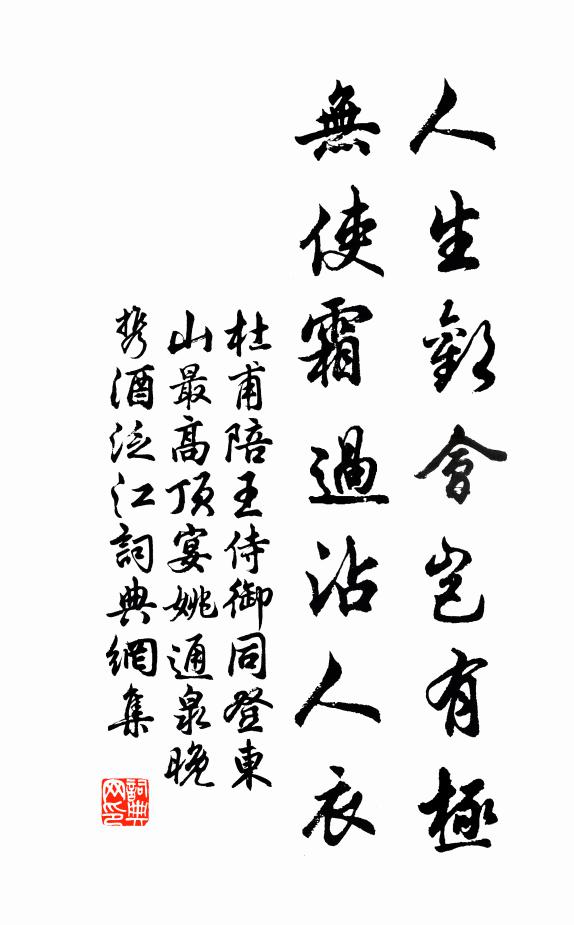 人生歡會豈有極
無使霜過沾人衣
杜甫陪王侍御同登東
山最高頂宴姚通泉晚
携酒泛江詞典網集
詞典
网印